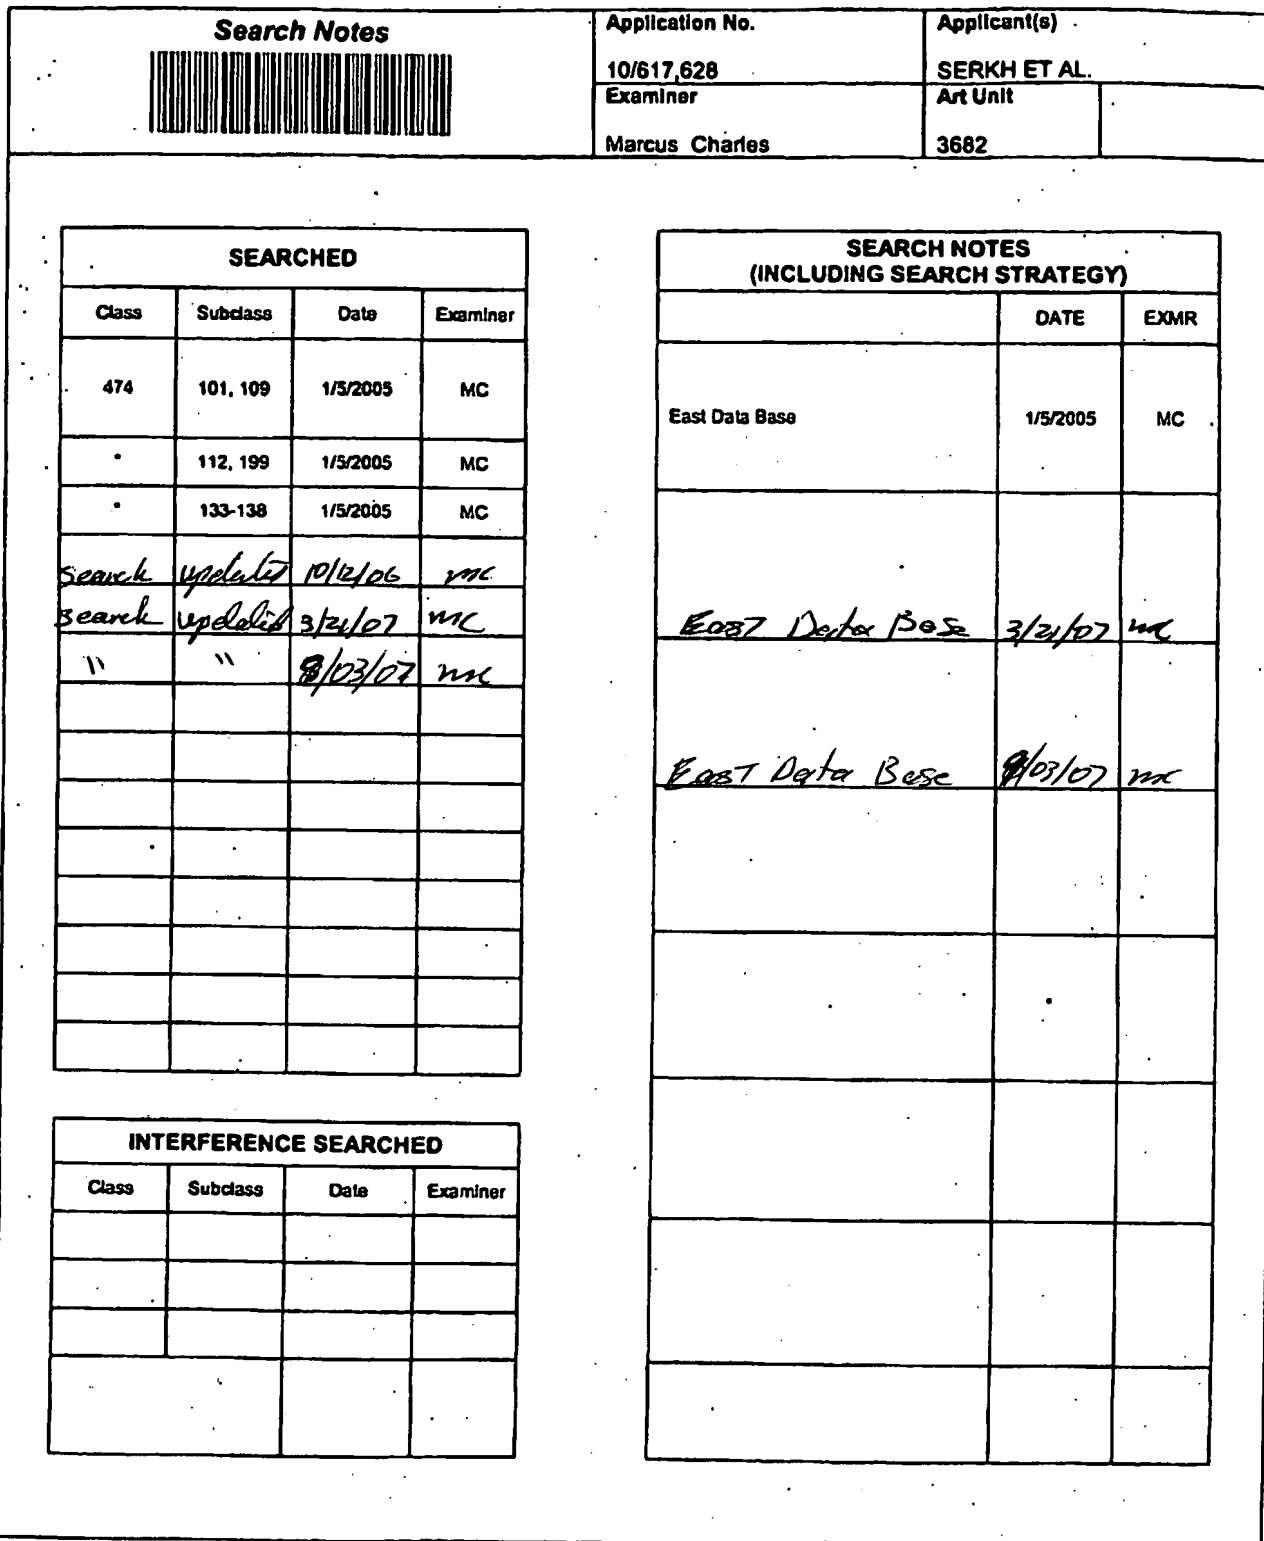 Search Notes
Application No.
10/617,628
Applicant(s)
SERKH ET AL.
Examiner
Marcus Charles
Art Unit
3682
SEARCHED
Class Subclass Date Examiner
474 101, 109 1/5/2005 MC
" 112, 199 1/5/2005 MC
" 133-138 1/5/2005 MC
search updated 10/12/06 mc
search updated 3/21/07 mc
" " /03/07 mc
SEARCH NOTES
(INCLUDING SEARCH STRATEGY)
DATE EXMR
East Data Base 1/5/2005 MC
East Data Base 3/21/07 mc
East Data Base /03/07 mc
INTERFERENCE SEARCHED
Class Subclass Date Examiner